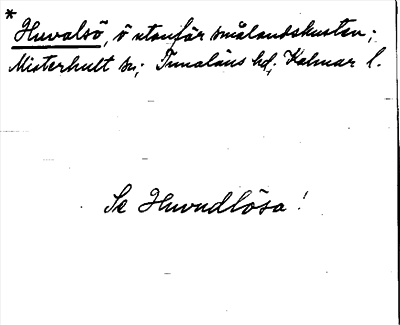 *
Huvalsö, ö utanför smålandskusten;
Misterhult sn; Tunaläns hd; Kalmar l.
Se Huvudlösa!